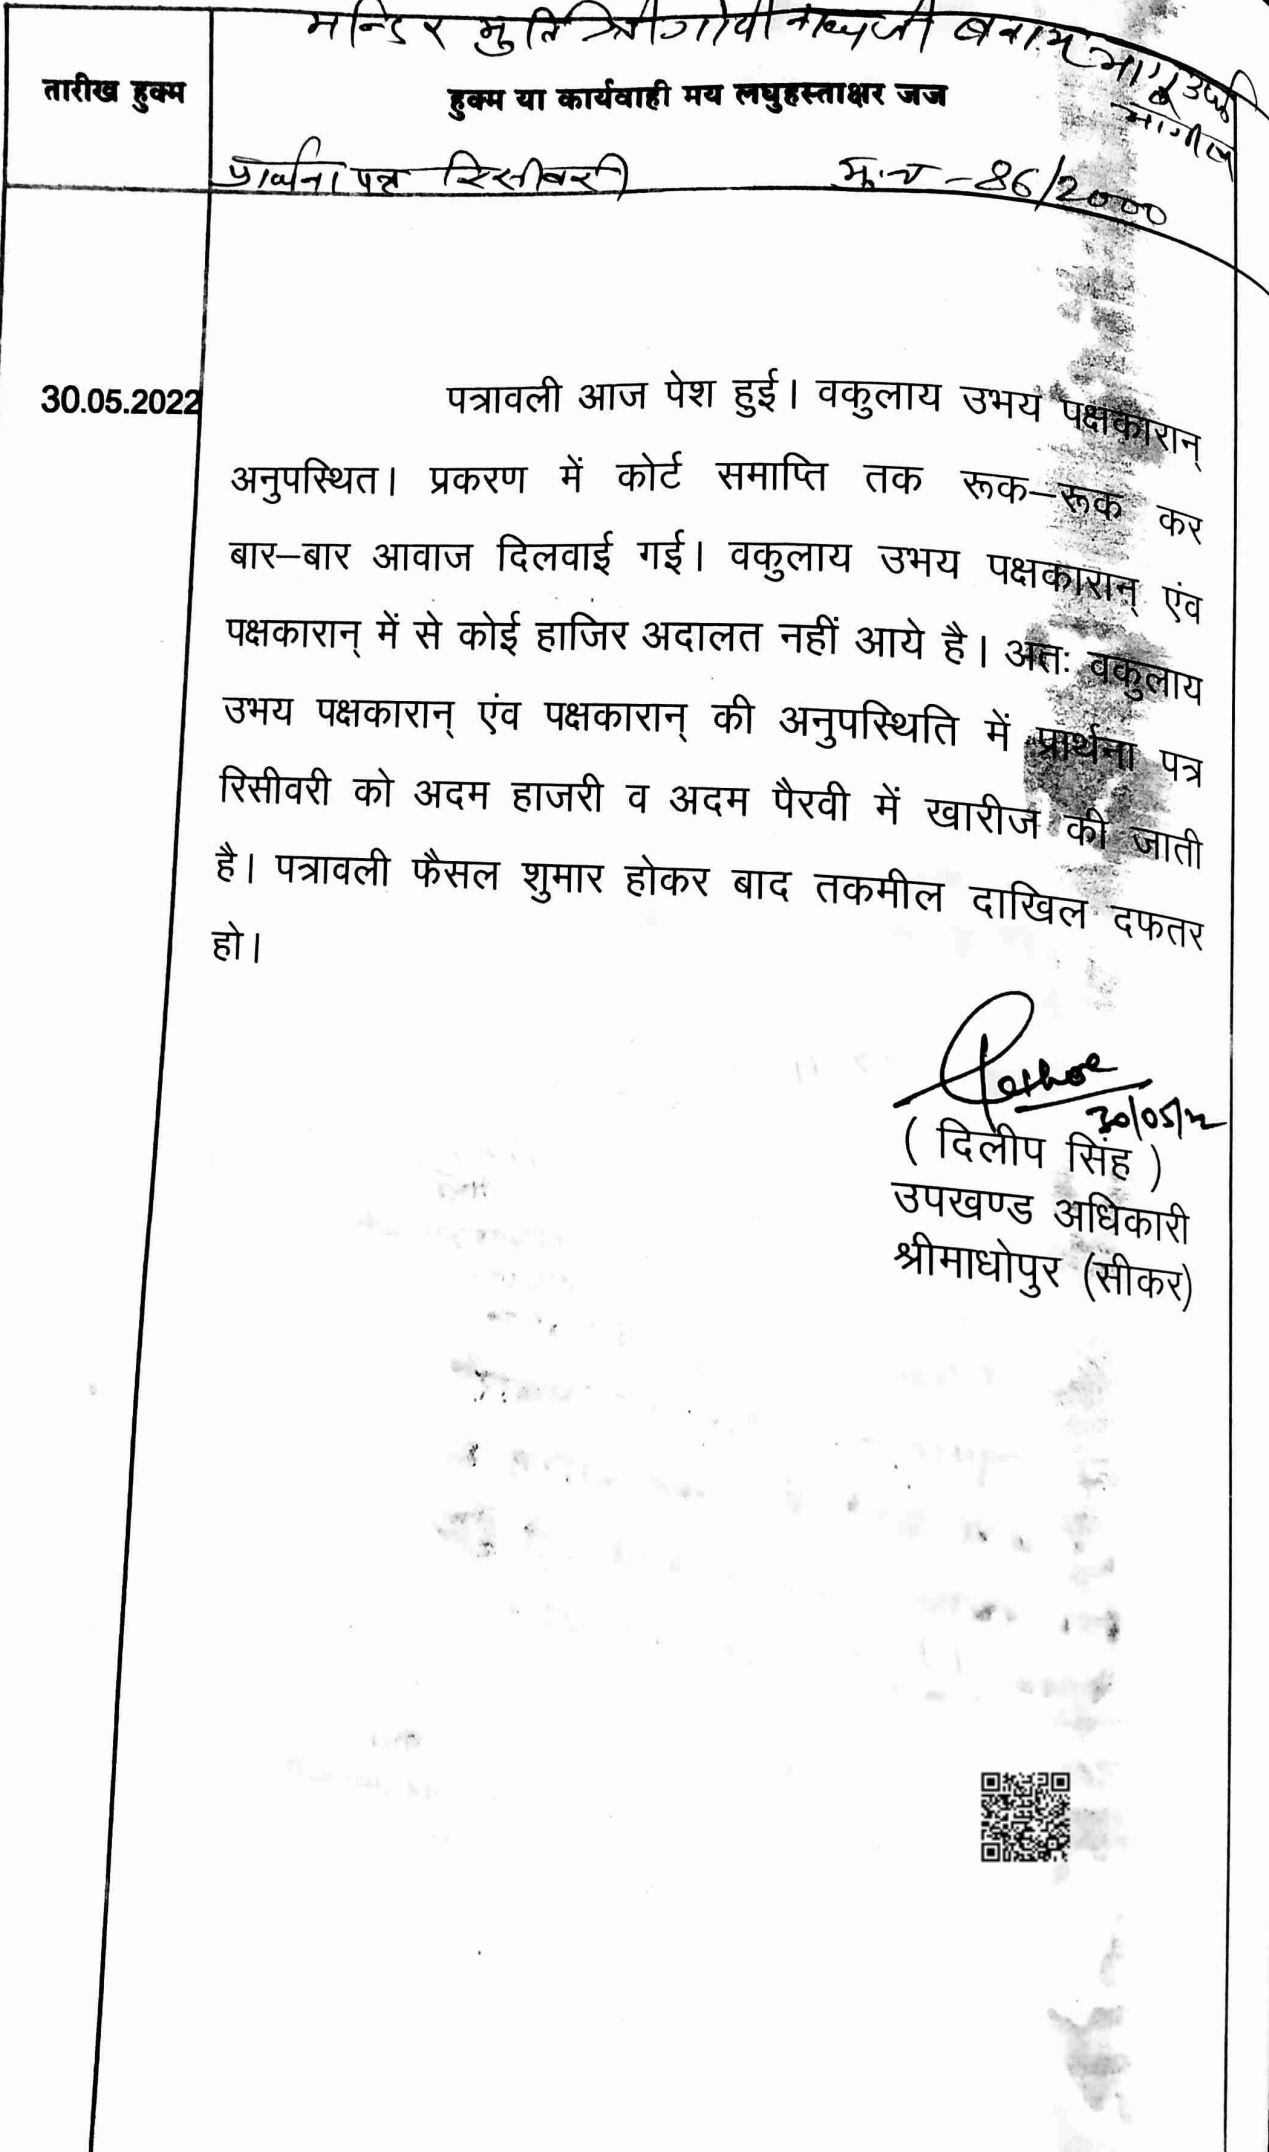 मन्दिर मुर्ति श्री गोपीनाथजी बनाम
तारीख हुक्म
हुक्म या कार्यवाही मय लघुहस्ताक्षर जज
प्रार्थना पत्र रिसीवरी
मु.न - 86/2000
30.05.2022
पत्रावली आज पेश हुई। वकुलाय उभय पक्षकारान्
अनुपस्थित। प्रकरण में कोर्ट समाप्ति तक रूक–रूक कर
बार–बार आवाज दिलवाई गई। वकुलाय उभय पक्षकारान् एंव
पक्षकारान् में से कोई हाजिर अदालत नहीं आये है। अतः वकुलाय
उभय पक्षकारान् एंव पक्षकारान् की अनुपस्थिति में प्रार्थना पत्र
रिसीवरी को अदम हाजरी व अदम पैरवी में खारीज की जाती
है। पत्रावली फैसल शुमार होकर बाद तकमील दाखिल दफतर
हो।
30/05/22
( दिलीप सिंह )
उपखण्ड अधिकारी
श्रीमाधोपुर (सीकर)